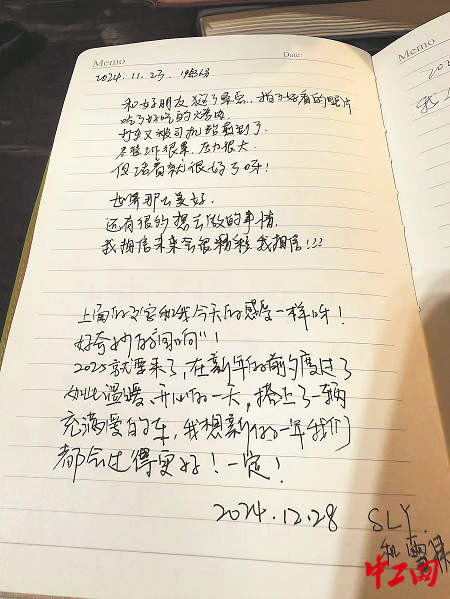 Memo
Date:
2024.11.23.
和好朋友逛了景点,拍了好看的照片
吃了好吃的烤肉
打车又被司机给感动了.
尽管工作很累.压力很大.
但活着就很好了呀!
世界那么美好.
还有很多想去做的事情.
我相信未来会很精彩 我相信!!!
上面的文字和我今天的感受一样呀!
好奇妙的“回响”!
2025就要来了,在新年的前夕度过了
如此温暖、开心的一天,搭上了一辆
充满爱的车,我想新的一年我们
都会过得更好!一定!
2024.12.28 SLY.
和
Memo
202
我
中工网